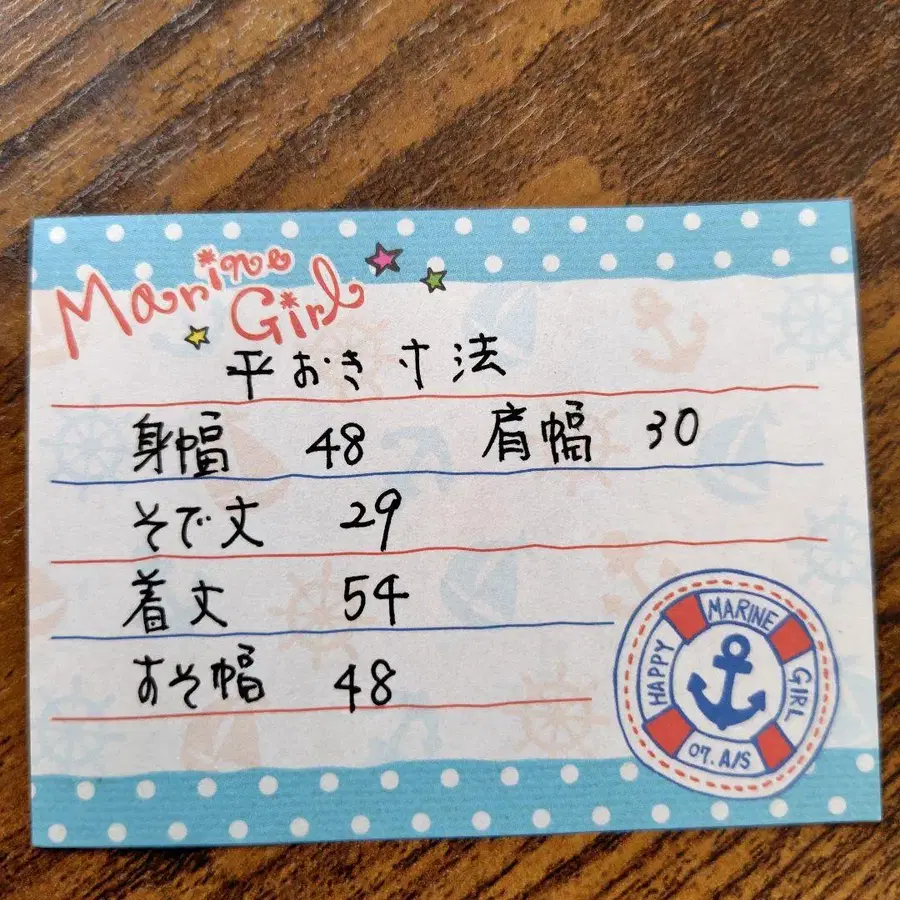 Marine
Girl
平おき寸法
身幅 48 肩幅 30
そで丈 29
着丈 54
すそ幅 48
HAPPY MARINE GIRL
07. A/S